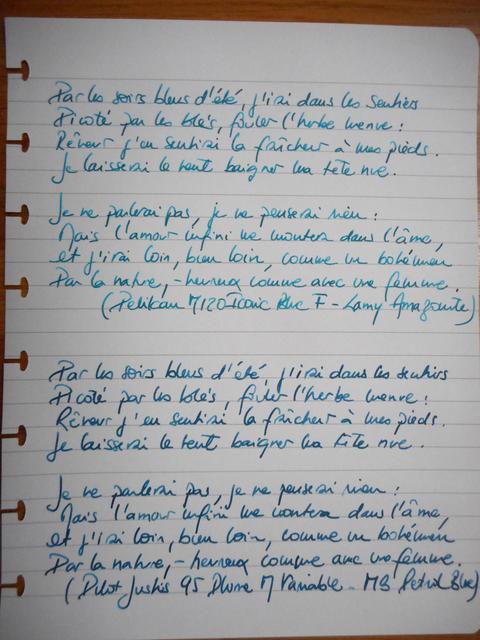 Par les soirs bleus d'été, j'irai dans les sentiers
Picoté par les blés, fouler l'herbe menue :
Rêveur j'en sentirai la fraîcheur à mes pieds.
Je laisserai le vent baigner ma tête nue.
Je ne parlerai pas, je ne penserai rien :
Mais l'amour infini me montera dans l'âme,
et j'irai loin, bien loin, comme un bohémien
Par la nature, - heureux comme avec une femme.
(Pelikan M120 Iconic Blue F - Lamy Amazonite)
Par les soirs bleus d'été j'irai dans les sentiers
Picoté par les blés, fouler l'herbe menue :
Rêveur j'en sentirai la fraîcheur à mes pieds.
Je laisserai le vent baigner ma tête nue.
Je ne parlerai pas, je ne penserai rien :
Mais l'amour infini me montera dans l'âme,
et j'irai loin, bien loin, comme un bohémien
Par la nature, - heureux comme avec une femme.
(Pilot Justus 95 Plume M Variable - MB Petrol Blue)